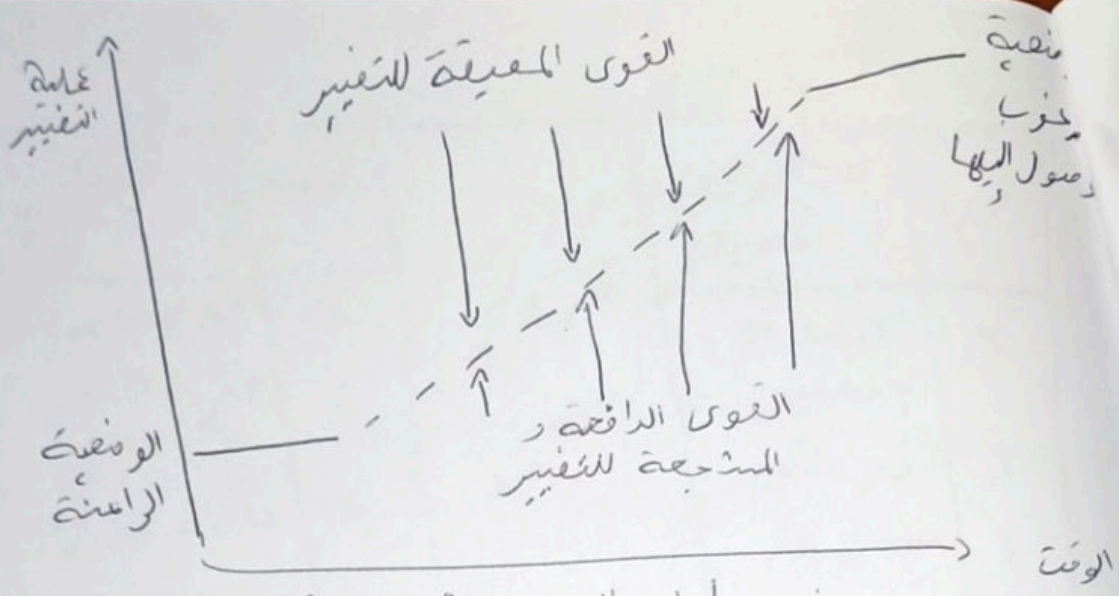 عملية
التغيير
القوى المعيقة للتغيير
وضعية
مرغوب
وصول إليها
الوضعية
الراهنة
القوى الدافعة و
المشجعة للتغيير
الوقت